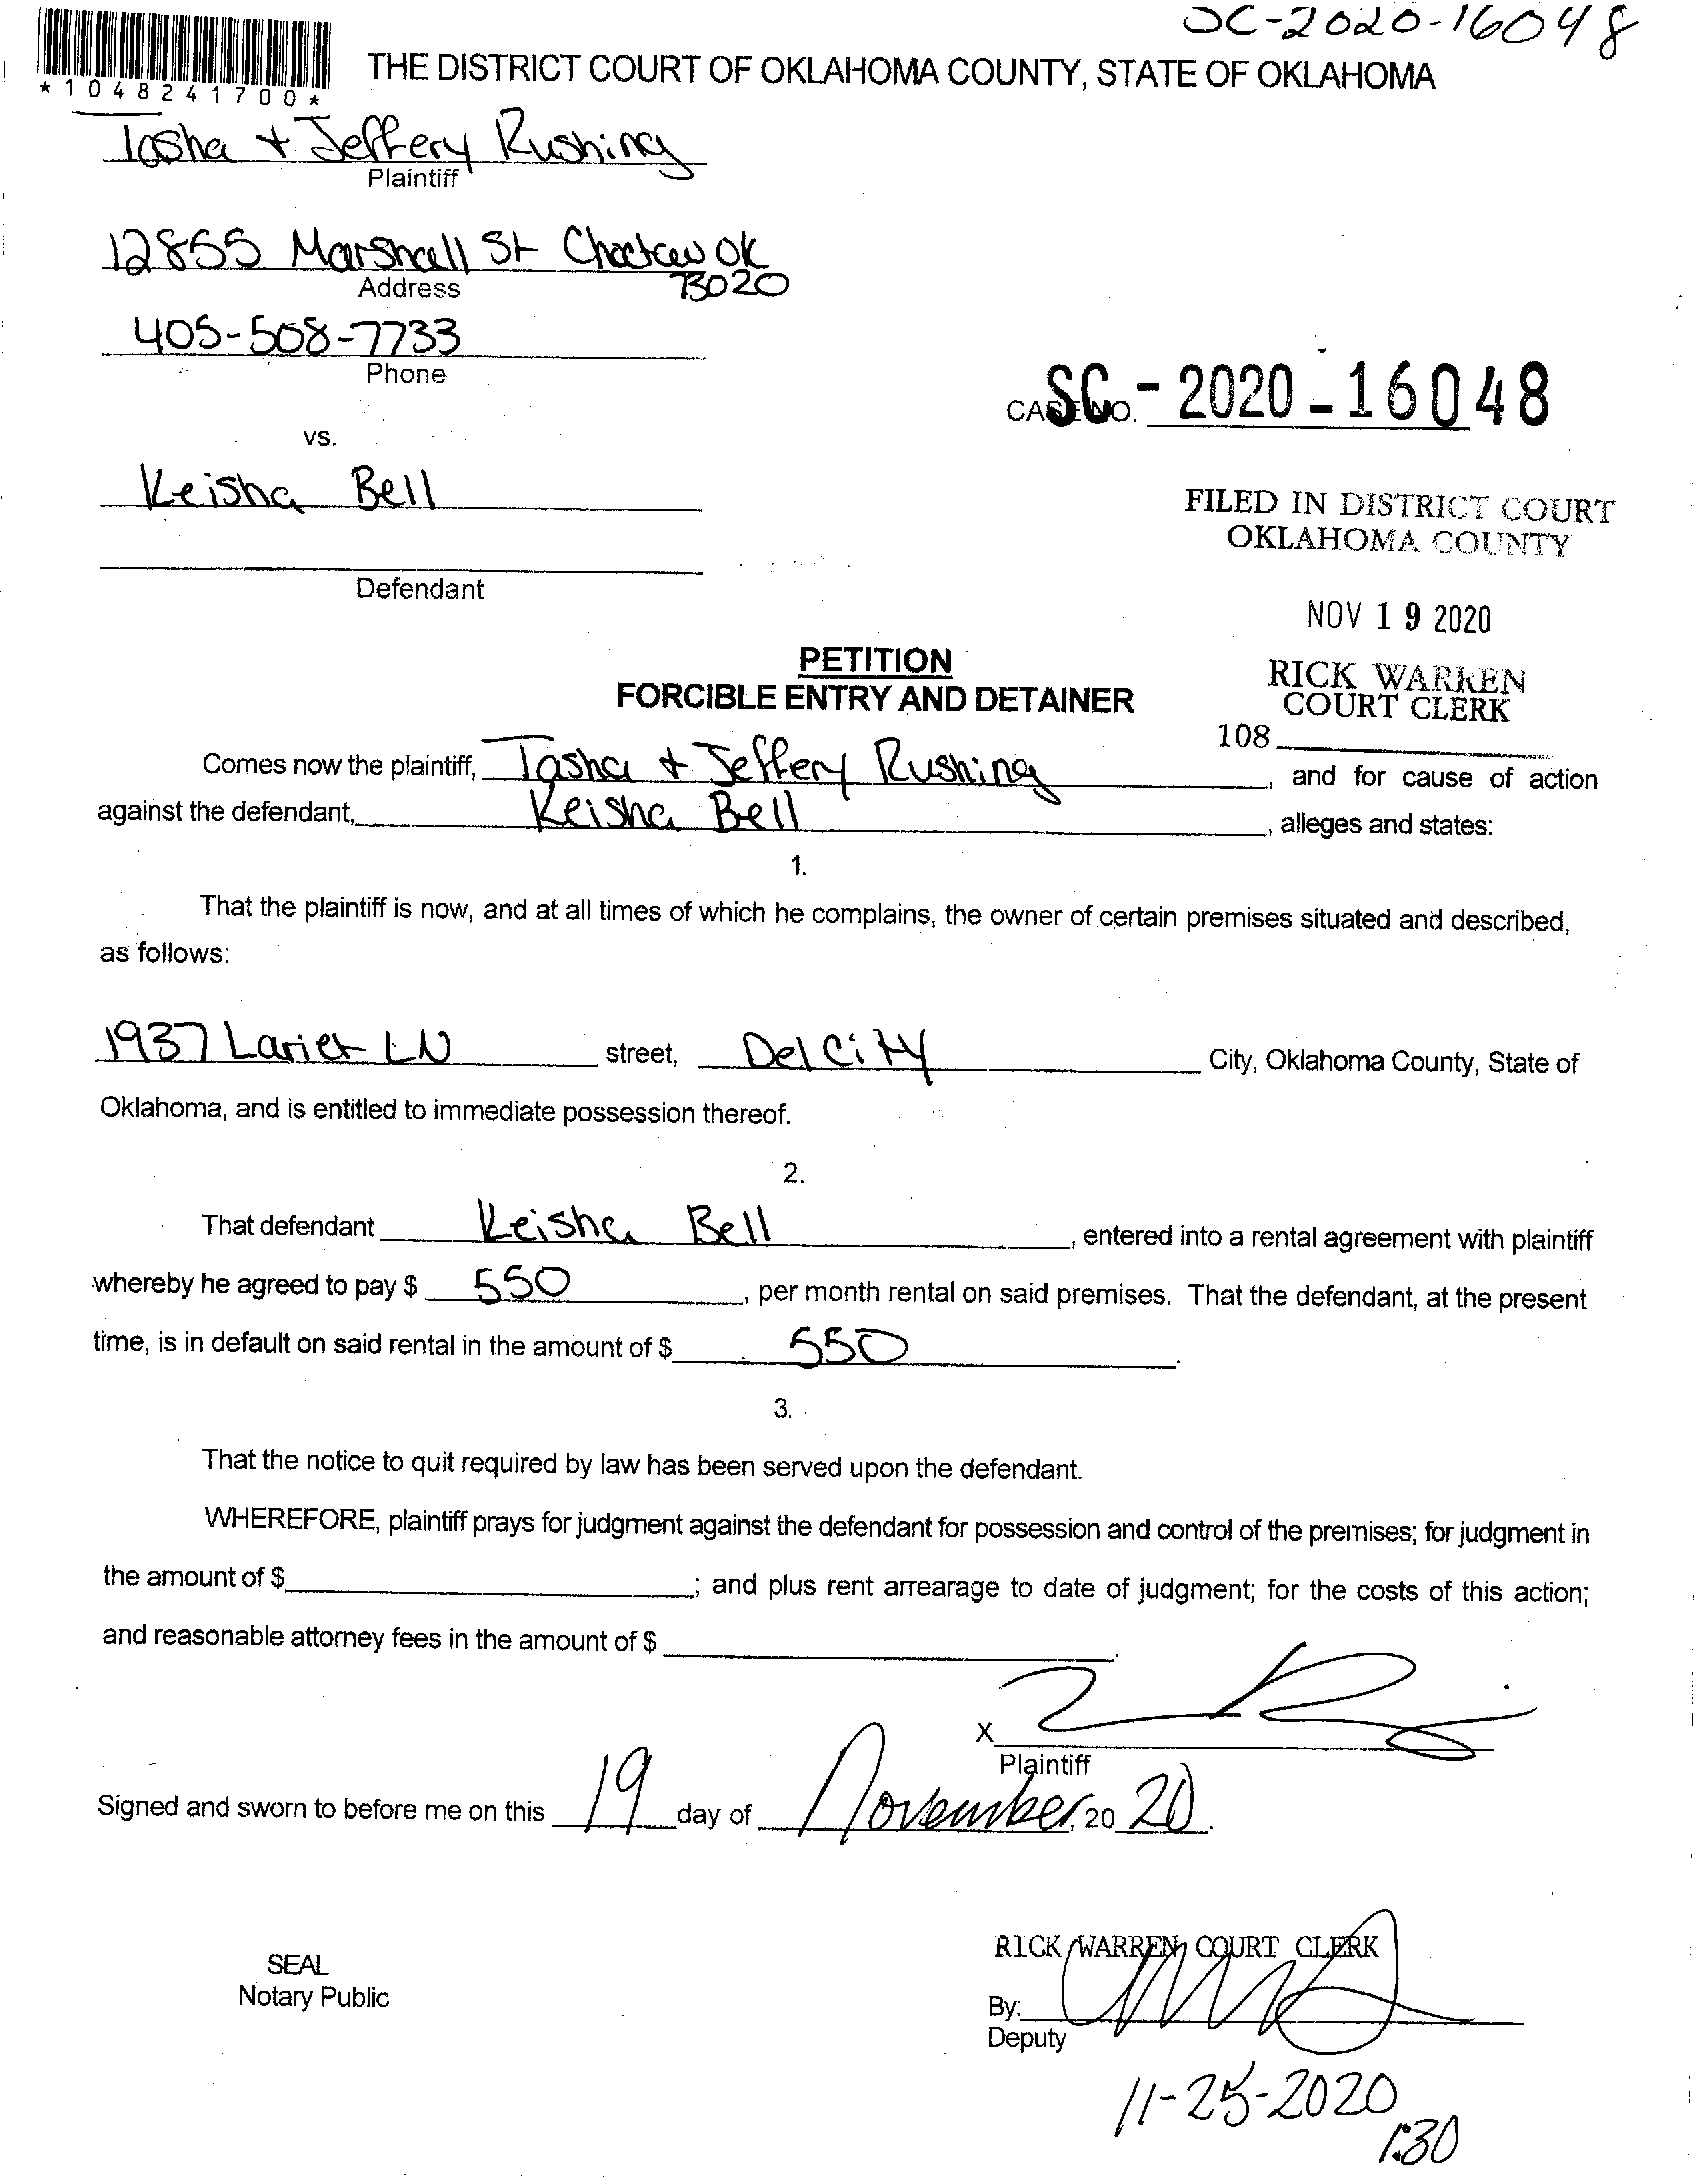 SC-2020-16048
*1048241700*
THE DISTRICT COURT OF OKLAHOMA COUNTY, STATE OF OKLAHOMA
Tasha + Jeffery Rushing
Plaintiff
12855 Marshall St Choctaw OK
73020
Address
405-508-7733
Phone
CASE NO. SC-2020-16048
vs.
Keisha Bell
FILED IN DISTRICT COURT
OKLAHOMA COUNTY
Defendant
NOV 19 2020
PETITION
FORCIBLE ENTRY AND DETAINER
RICK WARREN
COURT CLERK
108
Comes now the plaintiff, Tasha + Jeffery Rushing, and for cause of action
against the defendant, Keisha Bell, alleges and states:
1.
That the plaintiff is now, and at all times of which he complains, the owner of certain premises situated and described,
as follows:
1937 Lariet LN street, Del City City, Oklahoma County, State of
Oklahoma, and is entitled to immediate possession thereof.
2.
That defendant Keisha Bell, entered into a rental agreement with plaintiff
whereby he agreed to pay $ 550, per month rental on said premises. That the defendant, at the present
time, is in default on said rental in the amount of $ 550.
3.
That the notice to quit required by law has been served upon the defendant.
WHEREFORE, plaintiff prays for judgment against the defendant for possession and control of the premises; for judgment in
the amount of $ ; and plus rent arrearage to date of judgment; for the costs of this action;
and reasonable attorney fees in the amount of $ .
X
Plaintiff
Signed and sworn to before me on this 19 day of November, 20 20.
SEAL
Notary Public
RICK WARREN, COURT CLERK
By:
Deputy
11-25-2020
1:30